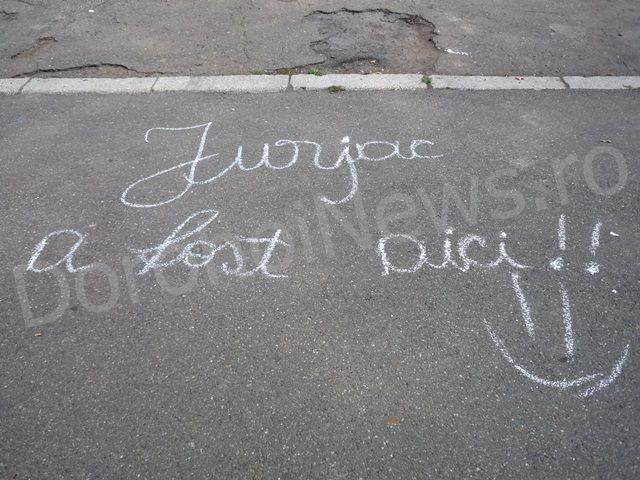 Jurjac
a fost aici !!
DorohoiNews.ro